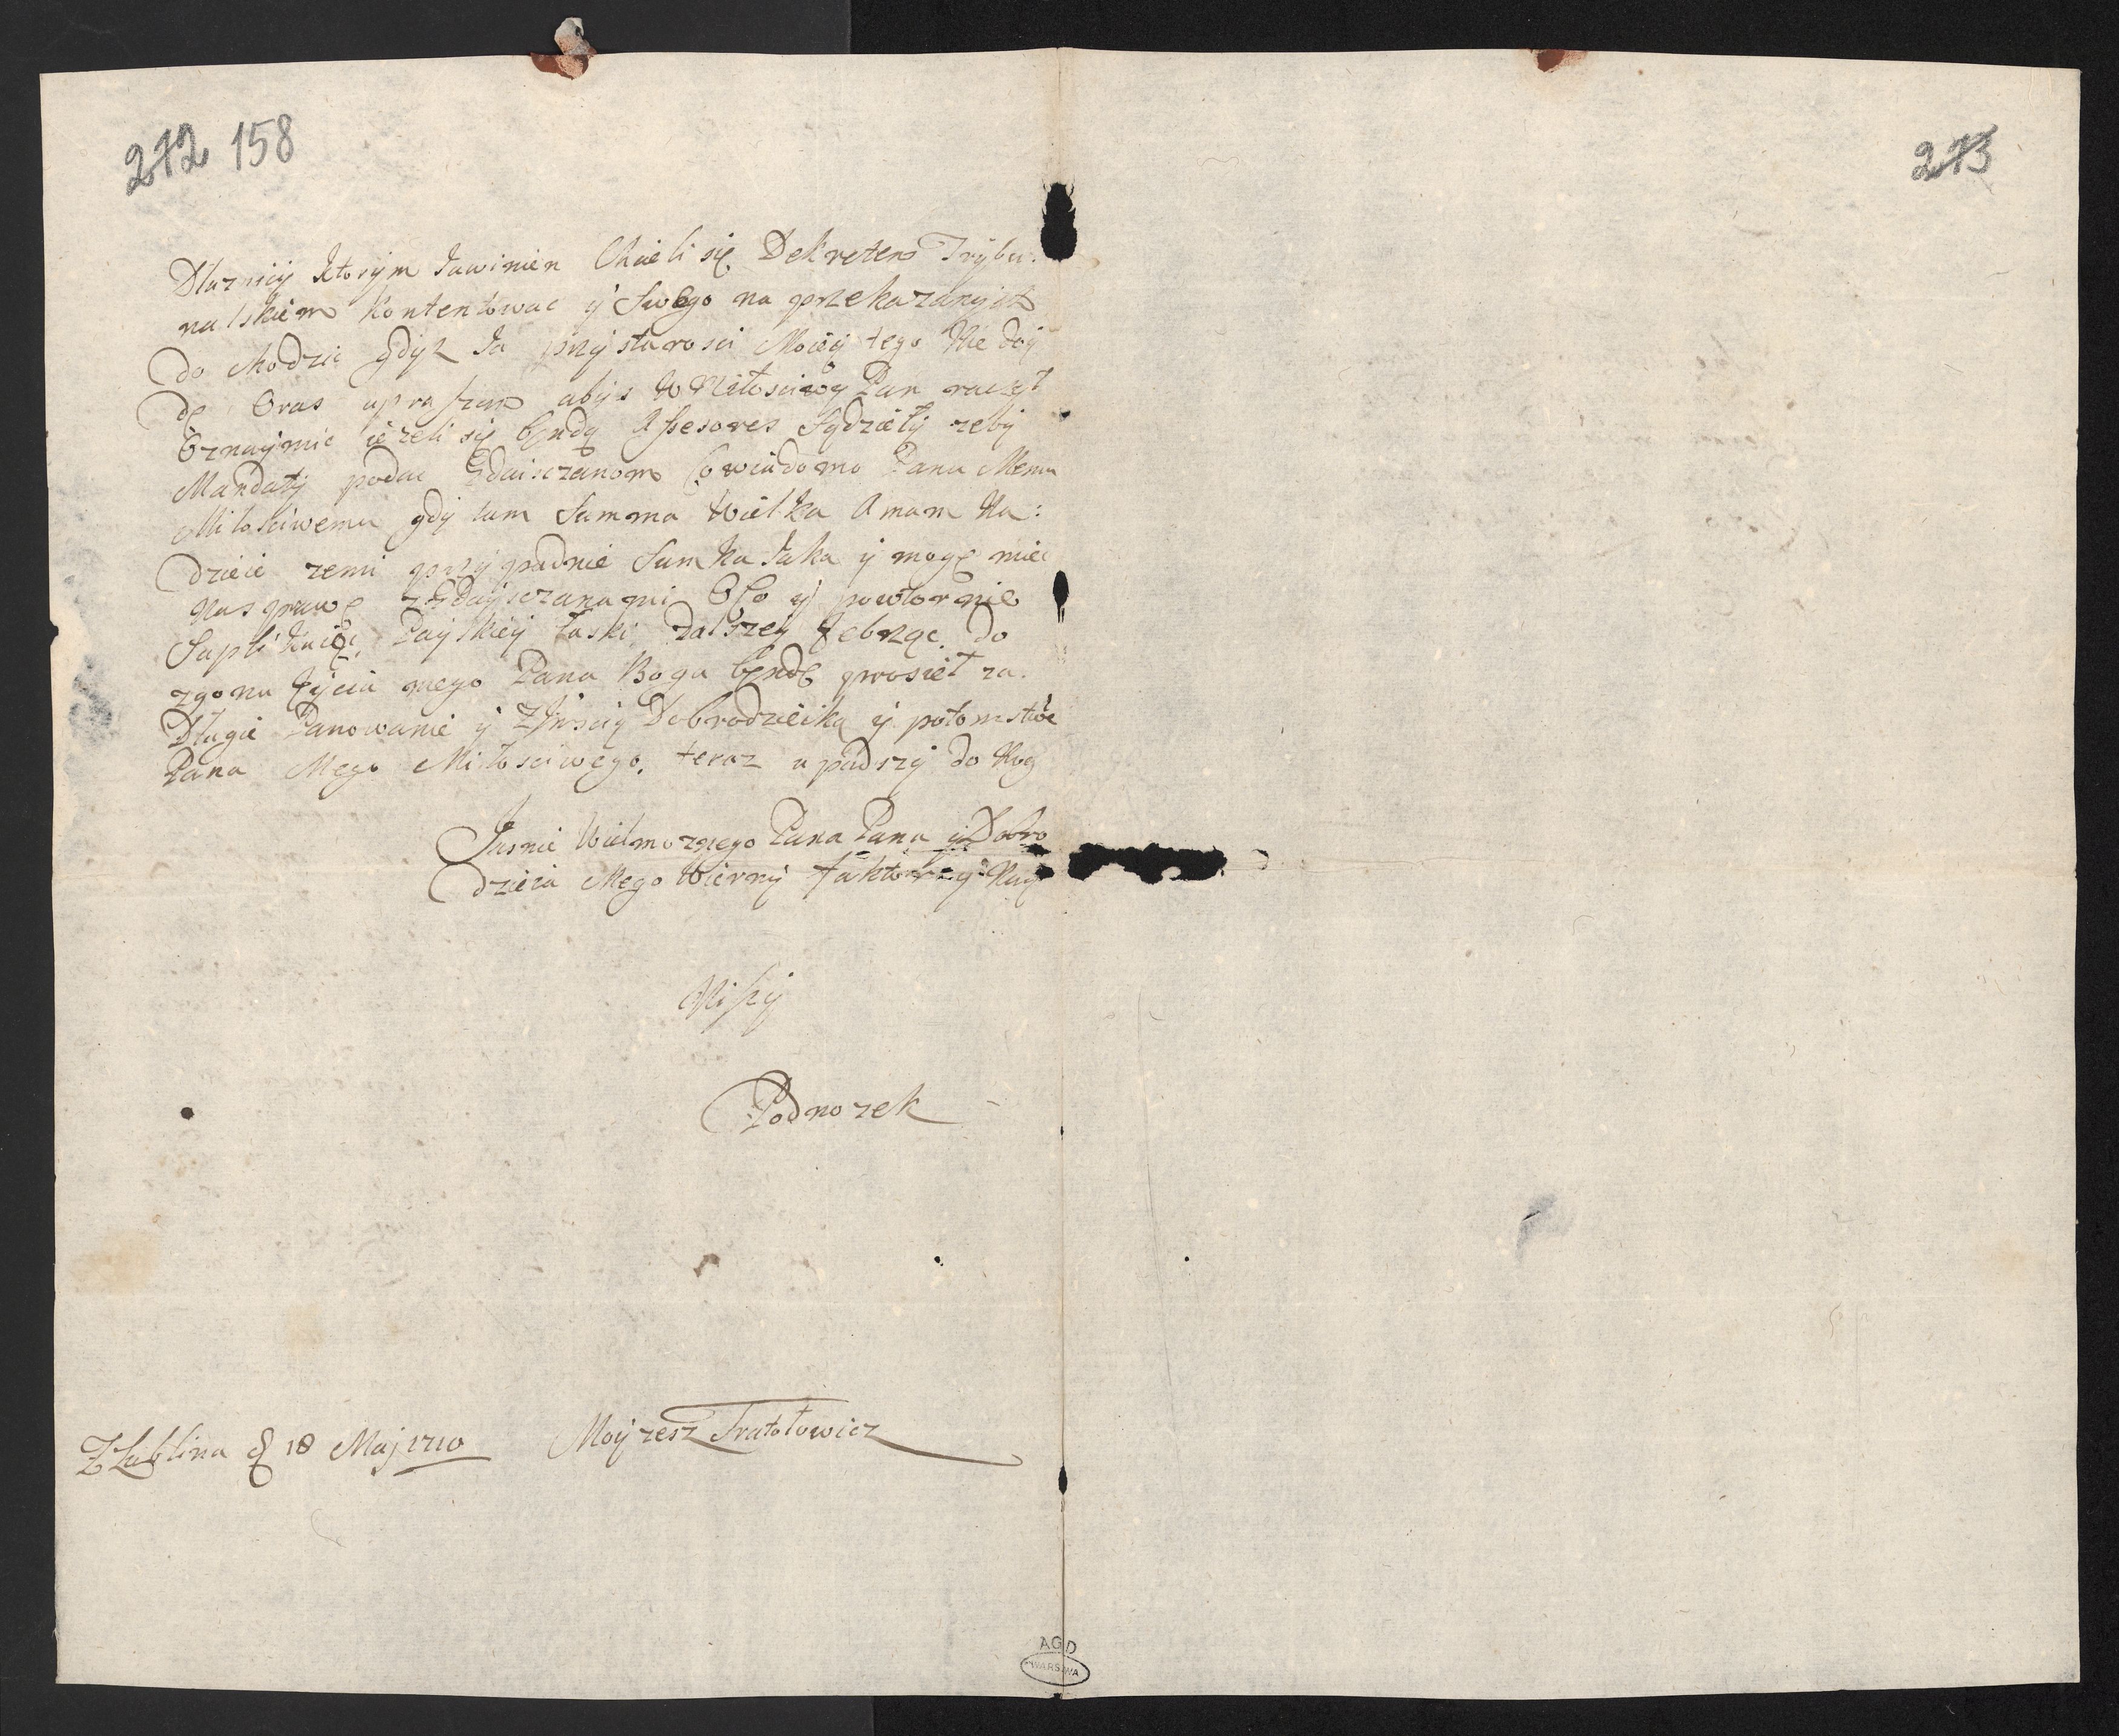 212 158
213
Dłuznicy ktorym Jawinien Chcieli się Dekretem Trybu:
nalskiem Kontentowac y Swego na przekazanych
do chodzic gdyz Ja przy starosci Moiey tego Nie doy
dę Oraz upraszam abys W Miłosciwy Pan raczył
Oznaymic iezeli się bendą Assesores Sądziely zeby
Mandaty podac Gdaisczanom Co wiadomo Panu Memu
Miłosciwemu gdy tam Summa Wielka A mam Na:
dzieie zemi przy padnie Sumka Jaka y mogę miec
Nasprawę z Gdayszczanami O Co y powtornie
Suplikuięc Payskiey łaski dalszey Zebrząc do
zgonu Zycia mego Pana Boga bendę prosieł za
Długie Panowanie y Z Jmscią Dobrodzieiką y potomstwe
Pana Mego Miłosciwego. teraz upadszy do Nog
Jasnie Wielmoznego Pana Pana y Dobro
dzieia Mego Wierny faktor y Nay
Niszy
Podnozek
Z Lublina d 18 Maj 1710 Moyzesz Fratołowicz
AGAD
WARSZAWA